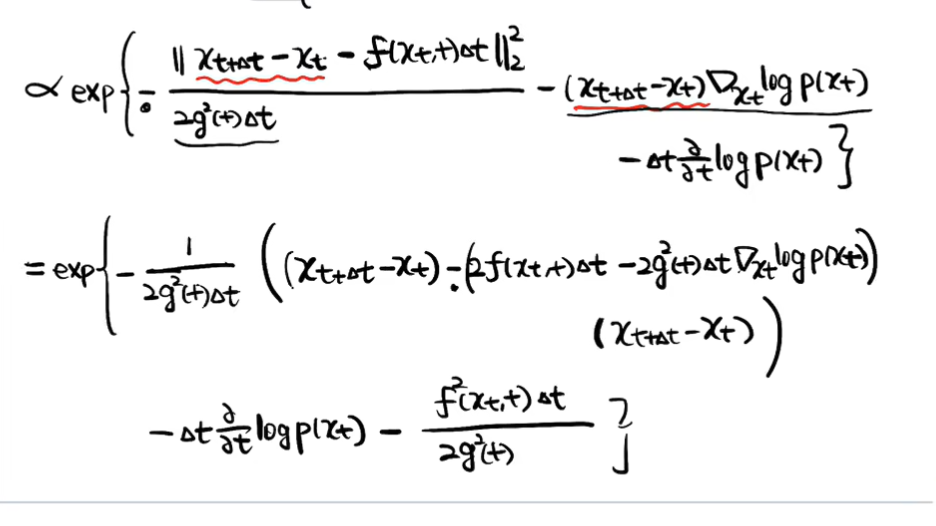 ∝ exp{ - ‖x_{t+Δt} - x_t - f(x_t,t)Δt‖₂² / 2g²(t)Δt - (x_{t+Δt} - x_t)∇_{x_t} log p(x_t)
- Δt ∂/∂t log p(x_t) }
= exp{ - 1 / 2g²(t)Δt ( ( (x_{t+Δt} - x_t) - (2f(x_t,t)Δt - 2g²(t)Δt ∇_{x_t} log p(x_t) )
(x_{t+Δt} - x_t) )
- Δt ∂/∂t log p(x_t) - f²(x_t,t)Δt / 2g²(t) }